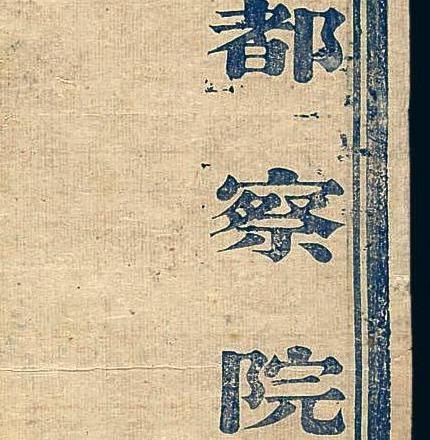 都察院